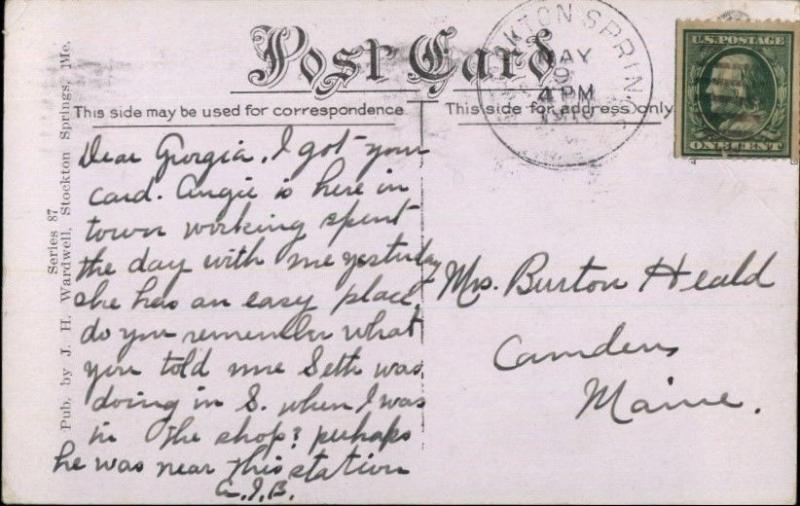 Post Card
This side may be used for correspondence
This side for address only
STOCKTON SPRIN
MAY
9
4 PM
1910
U.S. POSTAGE
ONE CENT
Series 87
Pub. by J. H. Wardwell, Stockton Springs, Me.
Dear Georgia, I got your
card. Angie is here in
town working spent
the day with me yesterday
she has an easy place,
do you remember what
you told me Seth was
doing in S. when I was
in the shop? perhaps
he was near this station
G.I.B.
Mrs. Burton Heald
Camden
Maine.